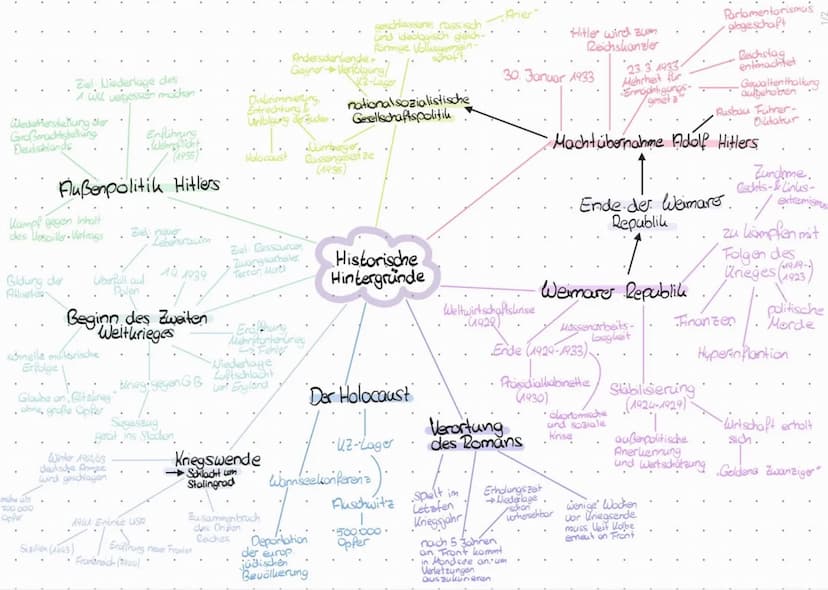 Historische
Hintergründe
Weimarer Republik
zu kämpfen mit
Folgen des
Krieges (1919-
1923)
Zunahme
Rechts- & Links-
extremismus
politische
Morde
Hyperinflantion
Finanzen
Stabilisierung
(1924-1929)
Wirtschaft erholt
sich
"Goldene Zwanziger"
außenpolitische
Anerkennung
und Wertschätzung
Ende (1929-1933)
Weltwirtschaftskrise
(1929)
Massenarbeits-
losigkeit
Präsidialkabinette
(1930)
ökonomische
und soziale
Krise
Ende der Weimarer
Republik
Machtübernahme Adolf Hitlers
30. Januar 1933
Hitler wird zum
Reichskanzler
23.3.1933
Mehrheit für
"Ermächtigungs-
gesetz"
Parlamentarismus
abgeschafft
Reichstag
entmachtet
Gewaltenteilung
aufgehoben
Ausbau Führer-
Diktatur
nationalsozialistische
Gesellschaftspolitik
geschlossene rassisch
und ideologisch gleich-
förmige Volksgemein-
schaft
"Arier"
Andersdenkende +
Gegner → Verfolgung
KZ-Lager
Diskriminierung,
Entrechtung &
Verfolgung der Juden
Holocaust
Nürnberger
Rassengesetze
(1935)
Außenpolitik Hitlers
Ziel Niederlage des
1. WK vergessen machen
Wiederherstellung der
Großmachtstellung
Deutschlands
Einführung
Wehrpflicht
(1935)
Kampf gegen Inhalt
des Versailler Vertrags
Beginn des Zweiten
Weltkrieges
Ziel neuer
Lebensraum
Überfall auf
Polen
1.9.1939
Ziel Ressourcen,
Zwangsarbeiter,
Bildung der
schnelle militärische
Erfolge
Glaube an "Blitzkrieg"
ohne große Opfer
Siegeszug
gerät ins Stocken
Krieg gegen GB
Niederlage
Luftschlacht
um England
Eröffnung
Mehrfrontenkrieg
→ Fehler
Kriegswende
→ Schlacht um
Stalingrad
Winter 1942/43
deutsche Armee
wird geschlagen
mehr als
Opfer
1941 Eintritt USA
Sizilien (1943)
Frankreich
Eröffnung neue Fronten
Zusammenbruch
des Dritten
Reiches
Der Holocaust
KZ-Lager
Auschwitz
500 000
Opfer
Wannseekonferenz
Deportation
der europ.
jüdischen
Bevölkerung
Verortung
des Romans
Spielt im
Letzten
Kriegsjahr
nach 5 Jahren
an Front kommt
in Mondsee an um
Verletzungen
auszukurieren
Erholungszeit
→ Niederlage
schon
vorhersehbar
wenige Wochen
vor Kriegsende
muss Veit Kolbe
erneut an Front